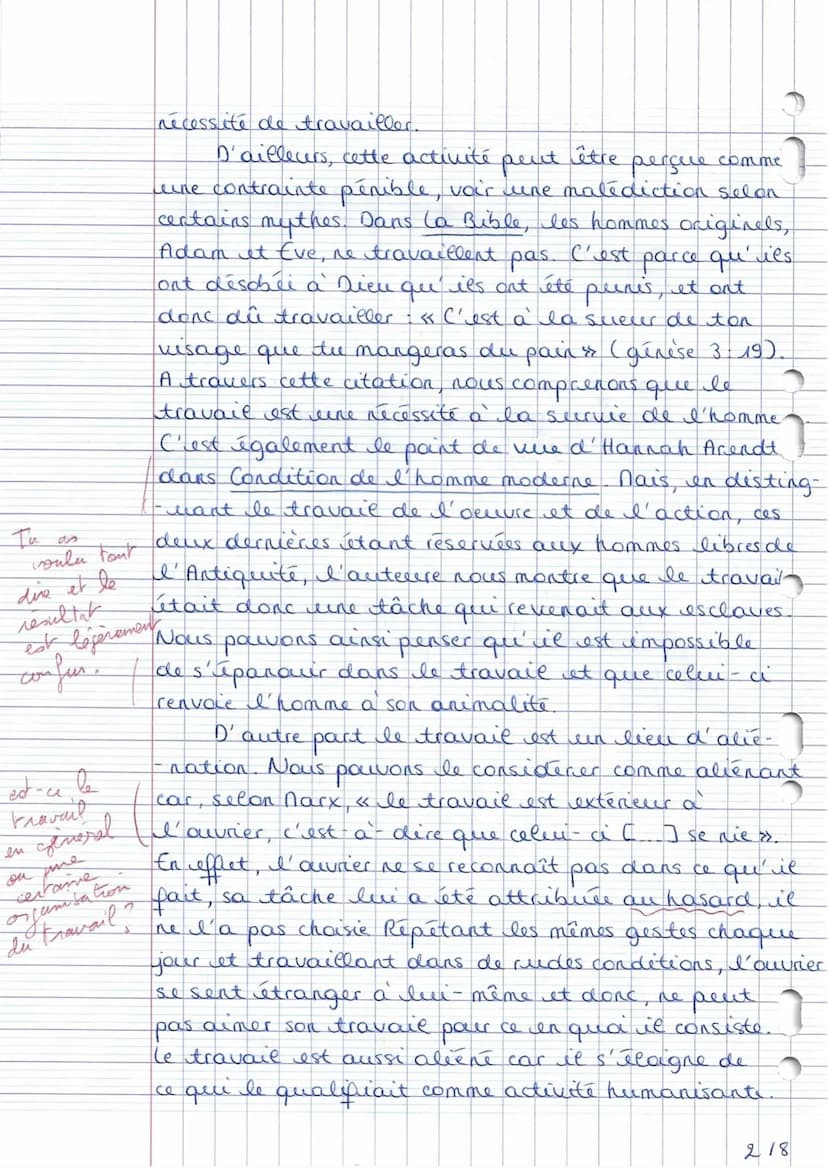 nécessité de travailler.
D'ailleurs, cette activité peut être perçue comme
une contrainte pénible, voir une malédiction selon
certains mythes. Dans La Bible, les hommes originels,
Adam et Eve, ne travaillent pas. C'est parce qu'ils
ont désobéi à Dieu qu'ils ont été punis, et ont
donc dû travailler : « C'est à la sueur de ton
visage que tu mangeras du pain » (génèse 3:19).
A travers cette citation, nous comprenons que le
travail est une nécessité à la survie de l'homme
C'est également le point de vue d'Hannah Arendt
dans Condition de l'homme moderne. Mais, en disting-
-uant le travail de l'oeuvre et de l'action, ces
deux dernières étant réservées aux hommes libres de
l'Antiquité, l'auteure nous montre que le travail
était donc une tâche qui revenait aux esclaves.
Nous pouvons ainsi penser qu'il est impossible
de s'épanouir dans le travail et que celui-ci
renvoie l'homme à son animalité.
Tu as
voulu tout
dire et le
résultat
est légèrement
confus.
D'autre part le travail est un lieu d'alié-
-nation. Nous pouvons le considérer comme aliénant
car, selon Marx, « le travail est extérieur à
l'ouvrier, c'est-à-dire que celui-ci [...] se nie ».
En effet, l'ouvrier ne se reconnaît pas dans ce qu'il
fait, sa tâche lui a été attribuée au hasard, il
ne l'a pas choisie. Répétant les mêmes gestes chaque
jour et travaillant dans de rudes conditions, l'ouvrier
se sent étranger à lui-même et donc, ne peut
pas aimer son travail pour ce en quoi il consiste.
Le travail est aussi aliéné car il s'éloigne de
ce qui le qualifiait comme activité humanisante.
est-ce le
travail
en général
ou une
certaine
organisation
du travail?
2/8